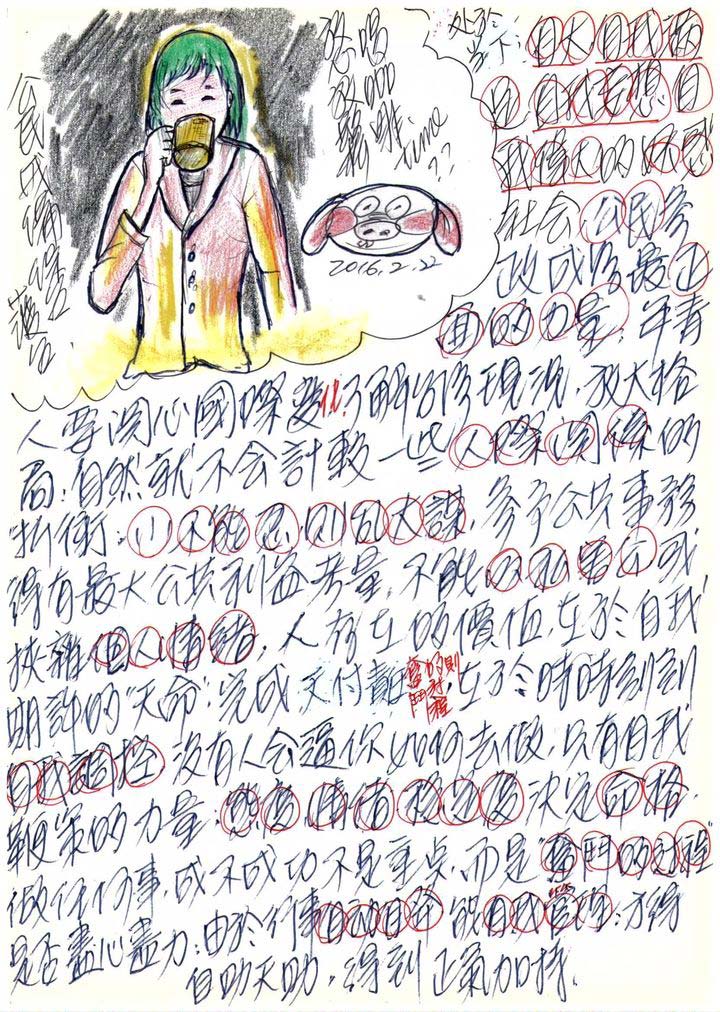 公民成備
處於
當下：自大自我
自我妄想自
我偉大的
社会公民參
政成為最正
面的力量，年青
2016.2.22
time??
人要関心國際变化了解台灣現況，放大格
局，自然就不会計較一些人際関係的
折衝，小不能忍，則乱大謀，参予公共事務
得有最大公共利益考量，不能以私害公或
挾雜個人情緒，人存在的價值，在於自我
期許的"天命"完成交付責任，在於時時刻刻
奮鬥的过程
自我調控，沒有人会逼你如何去做，只有自我
鞭策的力量，態度，情绪穩定度決定命格，
做任何事，成不成功不是重点，而是"奮鬥的过程"
是否盡心盡力，由於行事自动自發能自我管理，才得
自助天助，得到正氣加持。